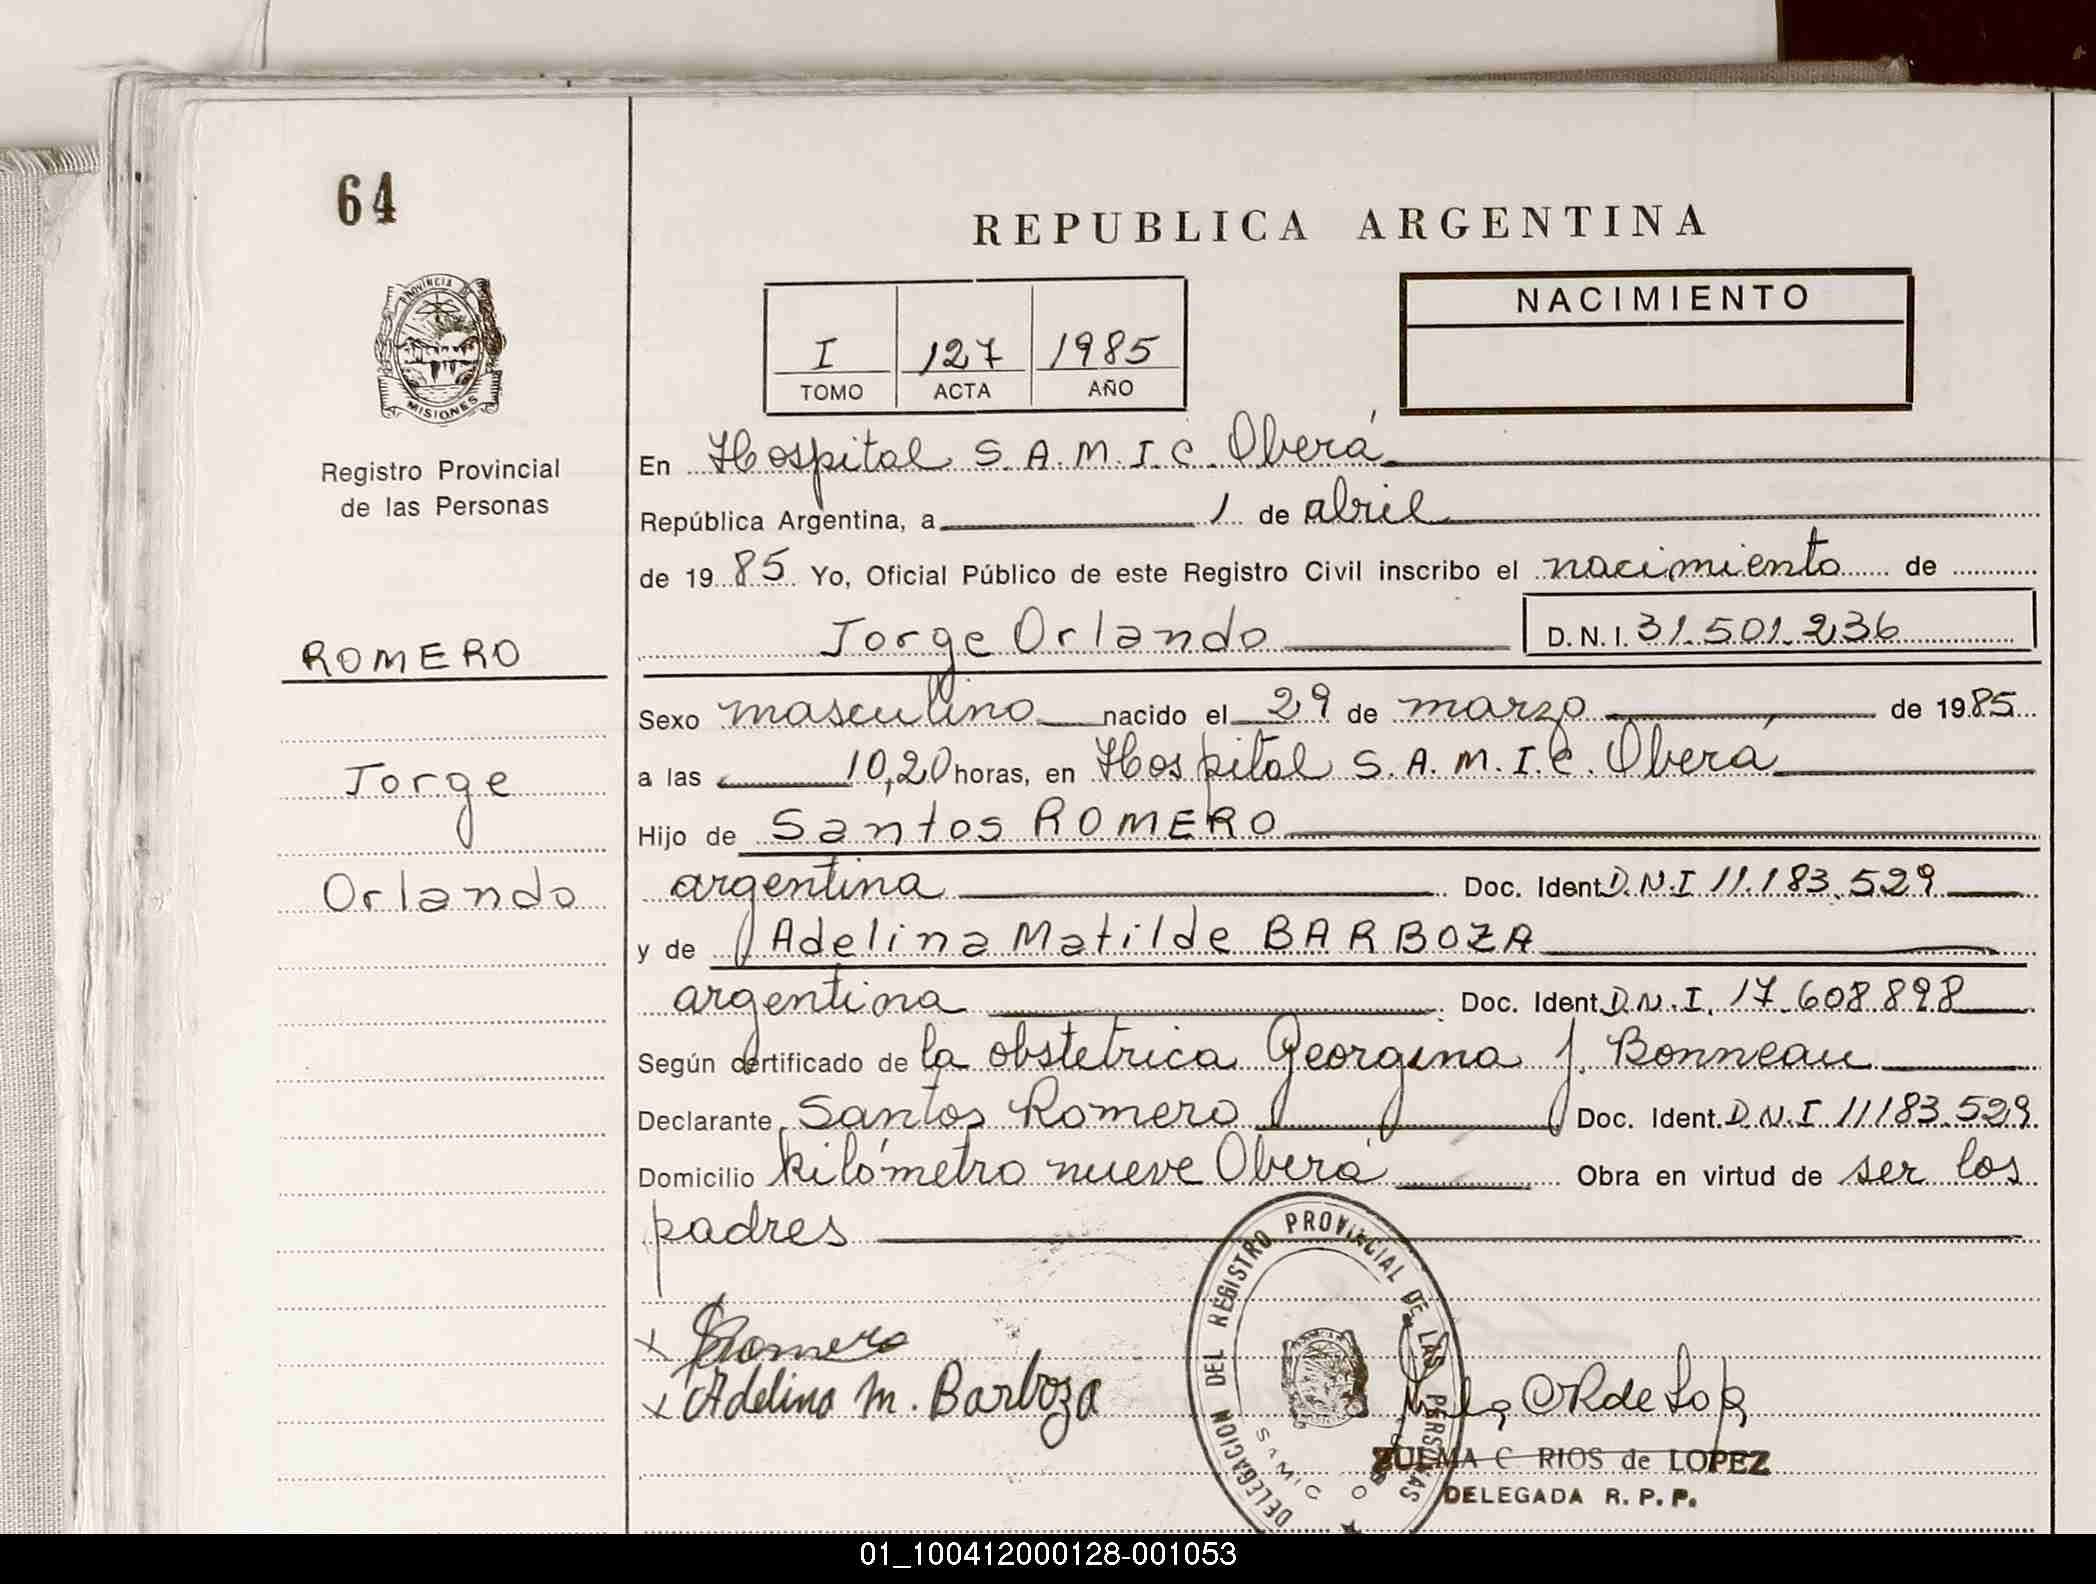 64
REPUBLICA ARGENTINA
PROVINCIA DE
MISIONES
Registro Provincial
de las Personas
I 127 1985
TOMO ACTA AÑO
NACIMIENTO
En Hospital S.A.M.I.C. Oberá
República Argentina, a 1 de abril
de 1985 Yo, Oficial Público de este Registro Civil inscribo el nacimiento de
Jorge Orlando D.N.I. 31.501.236
ROMERO
Jorge
Orlando
Sexo masculino nacido el 29 de marzo de 1985
a las 10,20 horas, en Hospital S.A.M.I.C. Oberá
Hijo de Santos ROMERO
argentina Doc. Ident. D.N.I 11.183.529
y de Adelina Matilde BARBOZA
argentina Doc. Ident. D.N.I. 17.608.898
Según certificado de la obstetrica Georgina J. Bonneau
Declarante Santos Romero Doc. Ident. D.N.I 11183.529
Domicilio kilómetro nueve Oberá Obra en virtud de ser los
padres
x SRomero
x Adelina M. Barboza
DELEGACION DEL REGISTRO PROVINCIAL DE LAS PERSONAS
SAMIC
ZULMA C RIOS de LOPEZ
DELEGADA R.P.P.
01_100412000128-001053